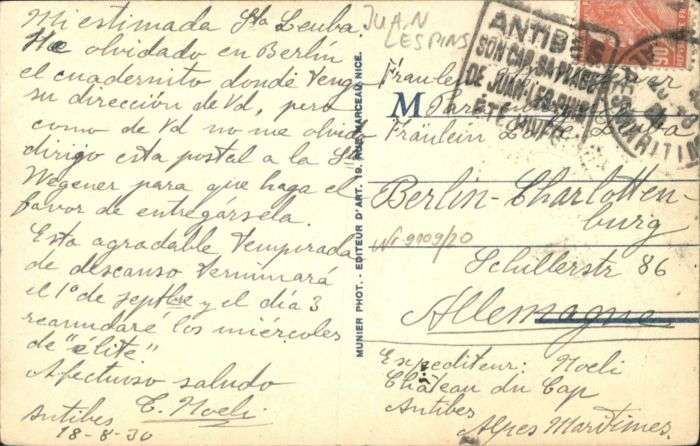 Mi estimada Sta Leuba.
He olvidado en Berlín
el cuadernito donde tengo
su dirección de Vd, pero
como de Vd no me olvido
dirigo esta postal a la Sta
Wegener para que haga el
favor de entregársela.
Esta agradable temporada
de descanso terminará
el 1º de septbre y el día 3
reanudaré los miércoles
de "élite"
Afectuoso saludo
C. Noeli
Antibes
18-8-30
MUNIER PHOT. - EDITEUR D'ART. 19, RUE MARCEAU, NICE.
JUAN
LESPINS
ANTIBES
SON CAP. SA PLAGE
DE JUAN-LES-PINS
ETE HIVER
90
Fräulein Wegener
M
Fräulein Leuba
Berlin-Charlotten-
burg
9009/20
Schillerstr 86
Allemagne
Expediteur: Noeli
Château du Cap
Antibes
Alpes Maritimes.